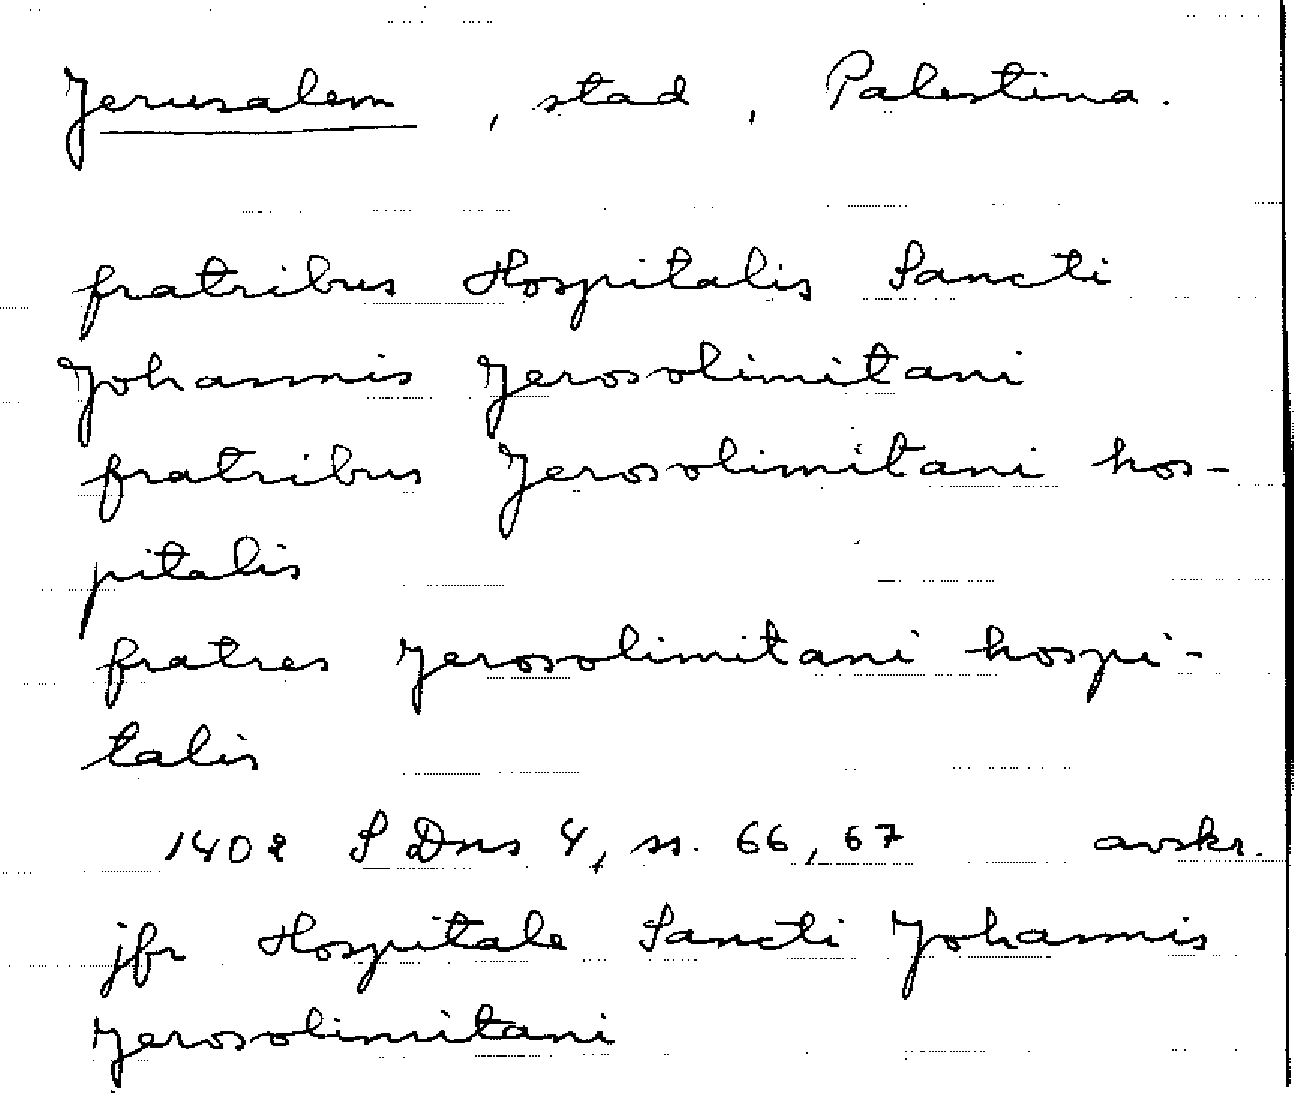 Jerusalem, stad, Palestina.
fratribus Hospitalis Sancti
Johannis Jerosolimitani
fratribus Jerosolimitani hos-
pitalis
fratres jerosolimitani hospi-
talis
1402 SDns 4, ss. 66, 67 avskr.
jfr Hospitale Sancti Johannis
Jerosolimitani